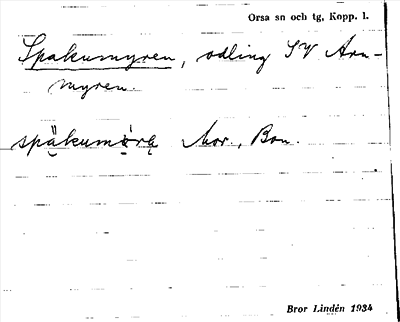 Orsa sn och tg, Kopp. l.
Spakumyren, odling SV Arn-
myren.
späkumöra Mor., Bon.
Bror Lindén 1934